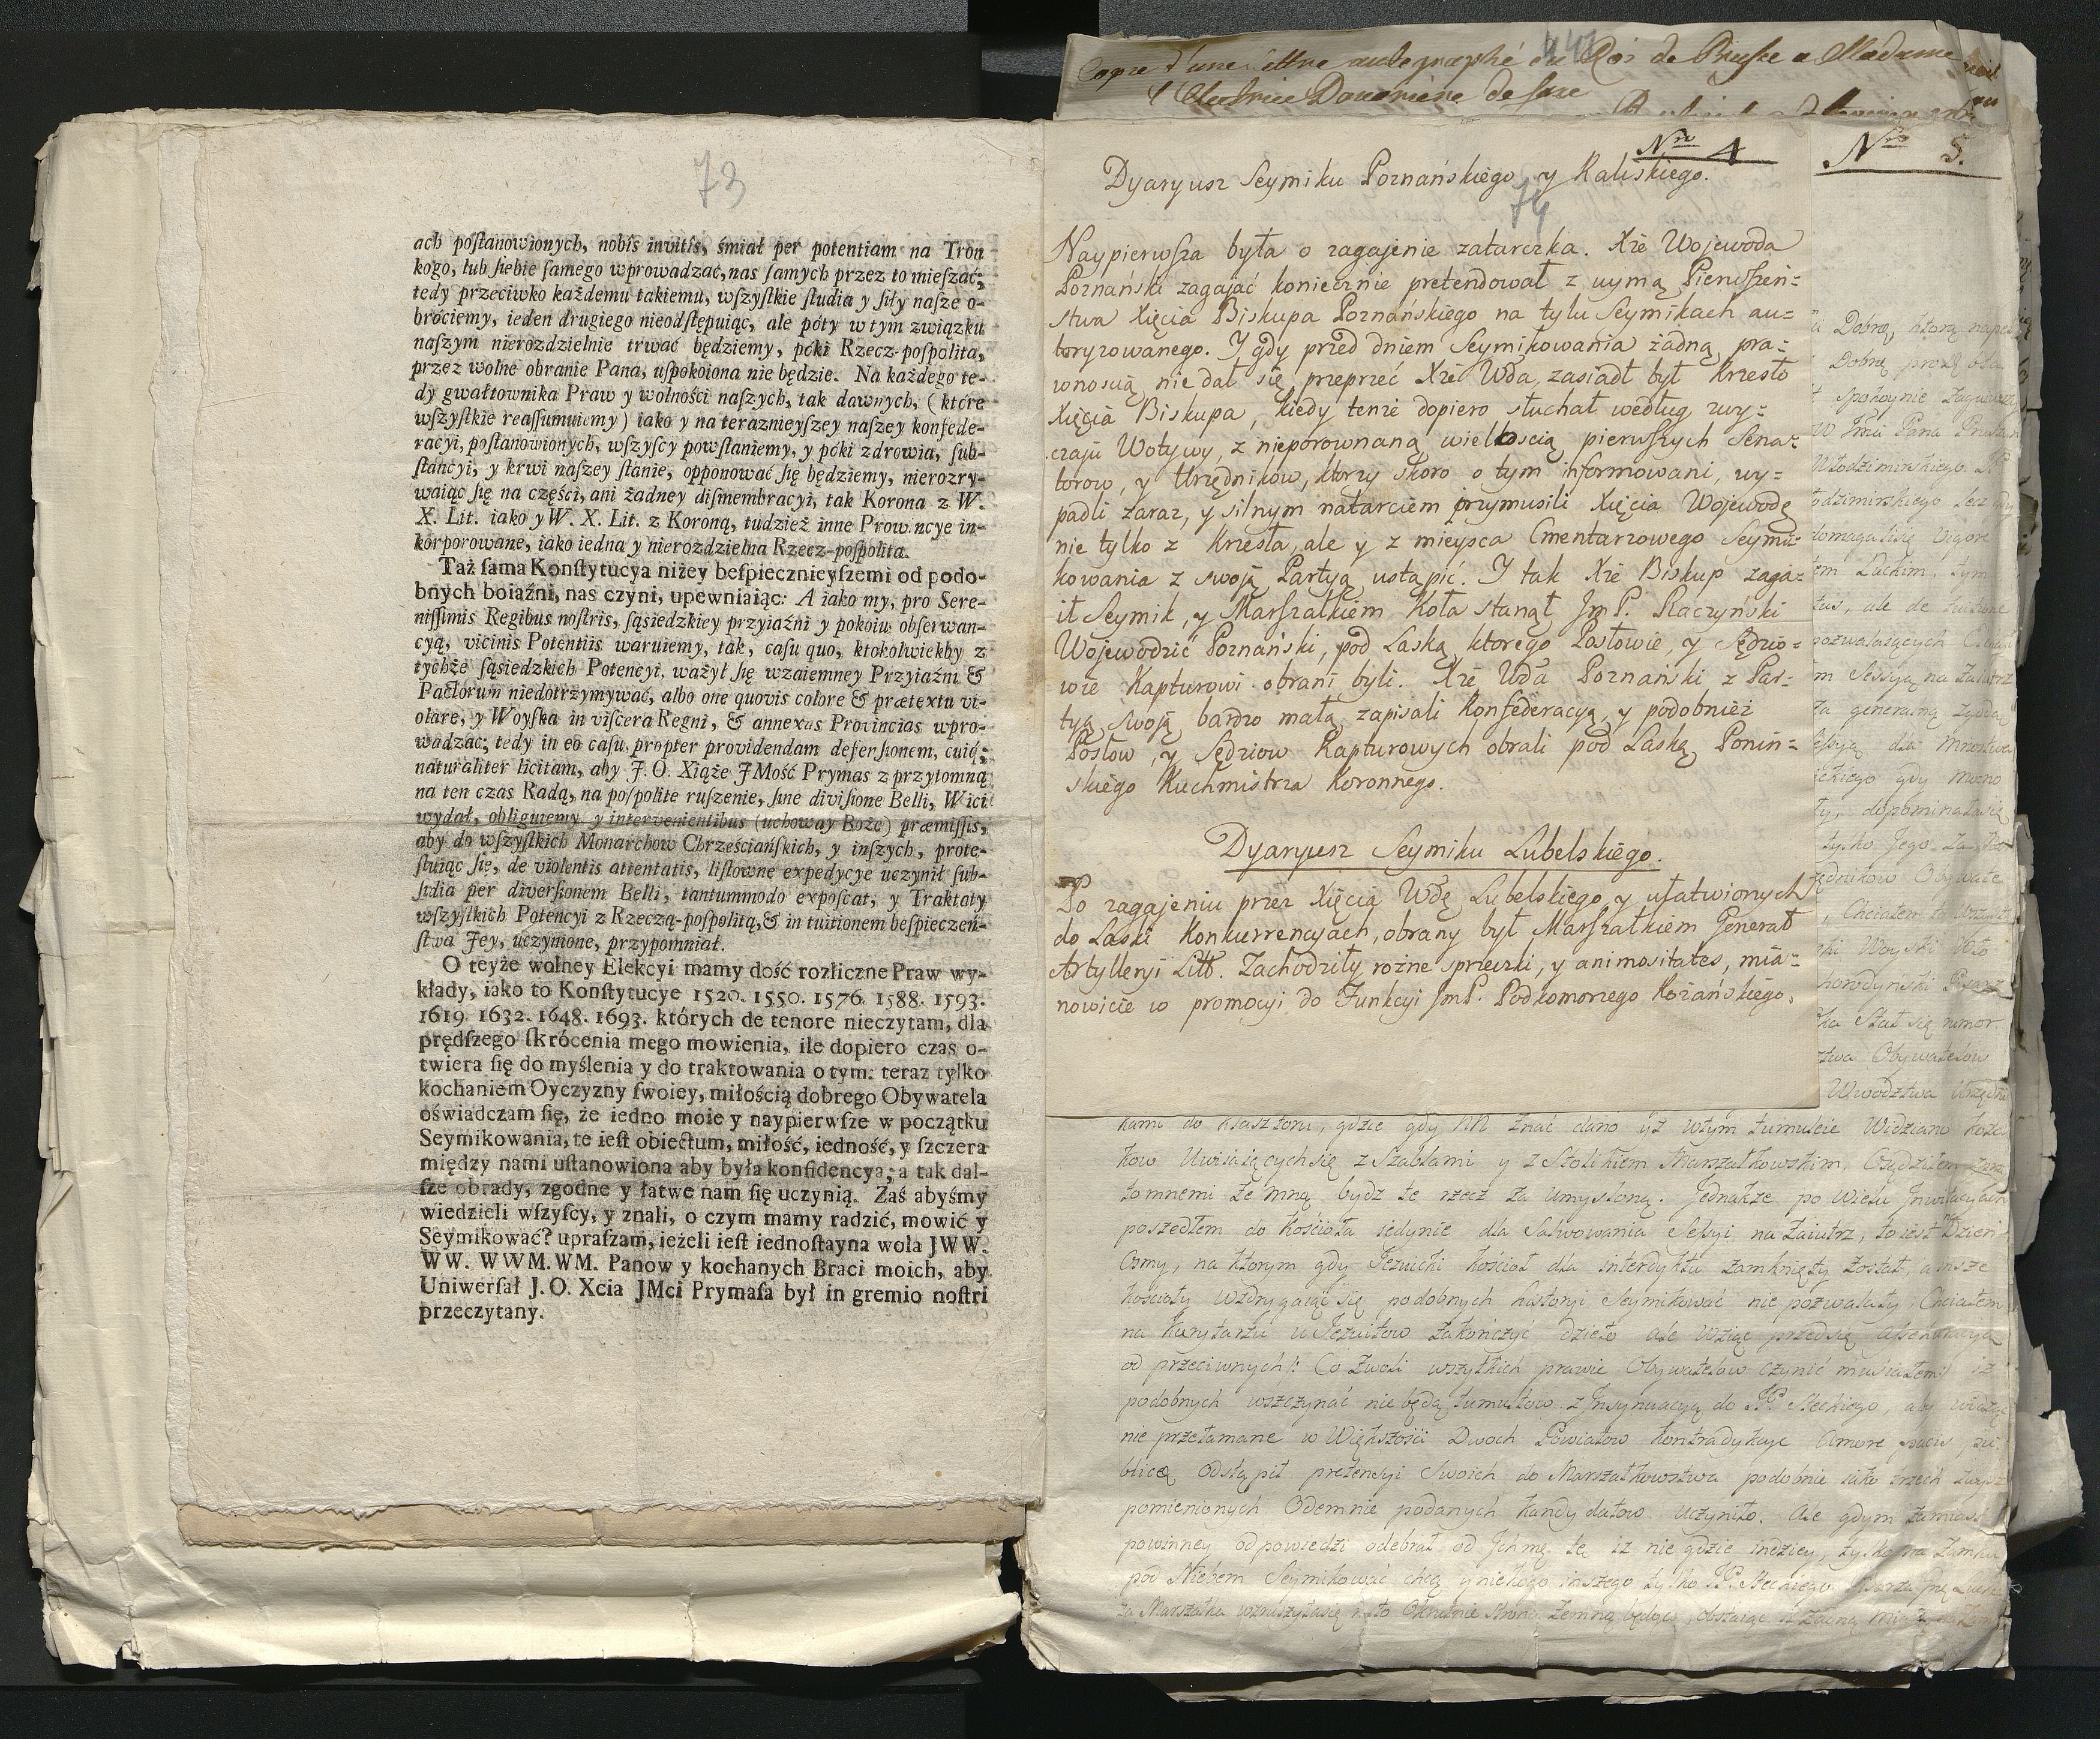 73
ach poſtanowionych, nobîs invitîs, śmiał per potentiam na Tron
kogo, lub ſiebie ſamego wprowadzać, nas ſamych przez to mieſzać;
tedy przeciwko każdemu takiemu, wſzyſtkie ſtudia y ſiły naſze o-
bróciemy, ieden drugiego nieodſtępuiąc, ale póty w tym związku
naſzym nierozdzielnie trwać będziemy, póki Rzecz-poſpolita,
przez wolne obranie Pana, uſpokoiona nie będzie. Na każdego te-
dy gwałtownika Praw y wolności naſzych, tak dawnych, (które
wſzyſtkie reaſſumuiemy) iako y na teraznieyſzey naſzey konfede-
racyi, poſtanowionych, wſzyſcy powſtaniemy, y póki zdrowia, ſub-
ſtancyi, y krwi naſzey ſtanie, opponować ſię będziemy, nierozry-
waiąc ſię na części, ani żadney diſmembracyi, tak Korona z W.
X. Lit. iako y W. X. Lit. z Koroną, tudzież inne Prowincye in-
korporowane, iako iedna y nierozdzielna Rzecz-poſpolita.
Taż ſama Konſtytucya niżey beſpiecznieyſzemi od podo-
bnych boiaźni, nas czyni, upewniaiąc: A iako my, pro Sere-
niſſimis Regibus noſtris, ſąsiedzkiey przyiaźni y pokoiu obſerwan-
cyą, vicinis Potentiis waruiemy, tak, caſu quo, ktokolwiekby z
tychże ſąsiedzkich Potencyi, ważył ſię wzaiemney Przyiaźni &
Pactorum niedotrzymywać, albo one quovis colore & prætextu vi-
olare, y Woyſka in viſcera Regni, & annexas Provincias wpro-
wadzać; tedy in eo caſu, propter providendam defenſionem, cuiq;
naturaliter licitam, aby J. O. Xiąże JMość Prymas z przytomną
na ten czas Radą, na poſpolite ruſzenie, ſine diviſione Belli, Wici
wydał, obliguiemy y intervenientibus (uchoway Boże) præmiſſis,
aby do wſzyſtkich Monarchow Chrześciańſkich, y inſzych, prote-
ſtuiąc ſię, de violentis attentatis, liſtowne expedycye uczynił ſub-
ſidia per diverſionem Belli, tantummodo expoſcat, y Traktaty
wſzyſtkich Potencyi z Rzeczą-poſpolitą, & in tuitionem beſpieczeń-
ſtwa Jey, uczynione, przypomniał.
O teyże wolney Elekcyi mamy dość rozliczne Praw wy-
kłady, iako to Konſtytucye 1520. 1550. 1576. 1588. 1593.
1619. 1632. 1648. 1693. których de tenore nieczytam, dla
prędſzego ſkrócenia mego mowienia, ile dopiero czas o-
twiera ſię do myślenia y do traktowania o tym: teraz tylko
kochaniem Oyczyzny ſwoiey, miłością dobrego Obywatela
oświadczam ſię, że iedno moie y naypierwſze w początku
Seymikowania, te ieſt obiectum, miłość, iedność, y ſzczera
między nami uſtanowiona aby była konfidencya; a tak dal-
ſze obrady, zgodne y łatwe nam ſię uczynią. Zaś abyśmy
wiedzieli wſzyſcy, y znali, o czym mamy radzić, mowić y
Seymikować? upraſzam, ieżeli ieſt iednoſtayna wola JWW.
WW. WWM. WM. Panow y kochanych Braci moich, aby
Uniwerſał J. O. Xcia JMci Prymaſa był in gremio noſtri
przeczytany.
Copie d'une lettre autographé du Roi de Prusse a Madame
l'Electrice Douariere de Saxe
Nro 4
Dyaryusz Seymiku Poznańskiego y Kaliskiego.
74
Naypierwſza była o zagajenie zatarczka. Xże Wojewoda
Poznański zagajać koniecznie pretendował z uymą Pierwſzeń=
stwa Xięcia Biskupa Poznańskiego na tylu Seymikach au=
toryzowanego. Y gdy przed dniem Seymikowania żadną pra=
wnoscią nie dał się przeprzeć Xże Wda, zasiadł był Krzesło
Xięcia Biskupa, kiedy tenże dopiero słuchał według zwy=
czaju Wotywy, z nieporownaną wielkoscią pierwſzych Sena=
torow, y Urzędnikow, ktorzy skoro o tym informowani, wy=
padli zaraz, y silnym natarciem przymusili Xięcia Wojewodę
nie tylko z Krzesła, ale y z mieysca Cmentarzowego Seymi=
kowania z swoją Partyą ustąpić. Y tak Xże Biskup zaga=
ił Seymik, y Marſzałkiem Koła stanął JmP. Raczyński
Wojewodzić Poznański, pod Laską ktorego Posłowie, y Sędzio=
wie Kapturowi obrani byli. Xże Wda Poznański z Par=
tyą swoją bardzo małą zapisali Konfederacyą, y podobnież
Posłow, y Sędziow Kapturowych obrali pod Laską Poniń=
skiego Kuchmistrza Koronnego.
Dyaryusz Seymiku Lubelskiego.
Po zagajeniu przez Xięcia Wdę Lubelskiego, y ułatwionych
do Laski Konkurrencyach, obrany był Marſzałkiem Generał
Artylleryi Litt. Zachodziły rożne sprzeczki, y animositates, mia=
nowicie w promocyi do Funkcyi JmP. Podkomorzego Rożańskiego.
Nro 5.
Dobrą, ktorą
Dobrą proszę
Spokoynie
W Jmci Pana
Włodzimirskiego
ale de
pozwalaiących
Sessyą na
generalną
dla mnostwa
gdy mocno
dopominała się
tylko Jego
Chciałem to
Woyski
Stał się rumor
Obywatelow
Uwodztwa
kami do klasztoru, gdzie gdy mi znać dano yż w tym tumulcie Widziano
kow Uwiiaiących się z Szablami y z Stolikiem Marszałkowskim, Osądziłem
to mnemi ze mną bydz te rzecz za Umysłoną. Jednakże po Wielu
poszedłem do Kościoła iedynie dla Salwowania Sessyi na Zaiutrz, to iest Dzień
Osmy, na ktorym gdy Jezuicki kościoł dla interdyktu zamknięty został, a insze
kościoły Wzdrygaiąc się podobnych historyi Seymikować nie pozwalały, Chciałem
na Kurytarzu u Jezuitow zakończyć dzieło ale Wziąć przedsię assekuracyą
od przeciwnych /: Co zwoli wszytkich prawie Obywatelow czynić musiałem :/ iż
podobnych wszczynać nie będą tumultow z Jnsynuacyą do JP. Steckiego, aby widząc
nie przełamane w Większości Dwoch Powiatow kontradykcye Amore pacis
blicæ odstąpił pretensyi Swoich do Marszałkowstwa podobnie iako trzech
pomienionych Odemnie podanych kandydatow uczyniło. Ale gdym zamiast
powinney odpowiedzi odebrał od Jchmć tę, iż nie gdzie indziey, tylko na Zamku
pod Niebem Seymikować chcą y niekogo inszego tylko JP. Steckiego
za Marszałka